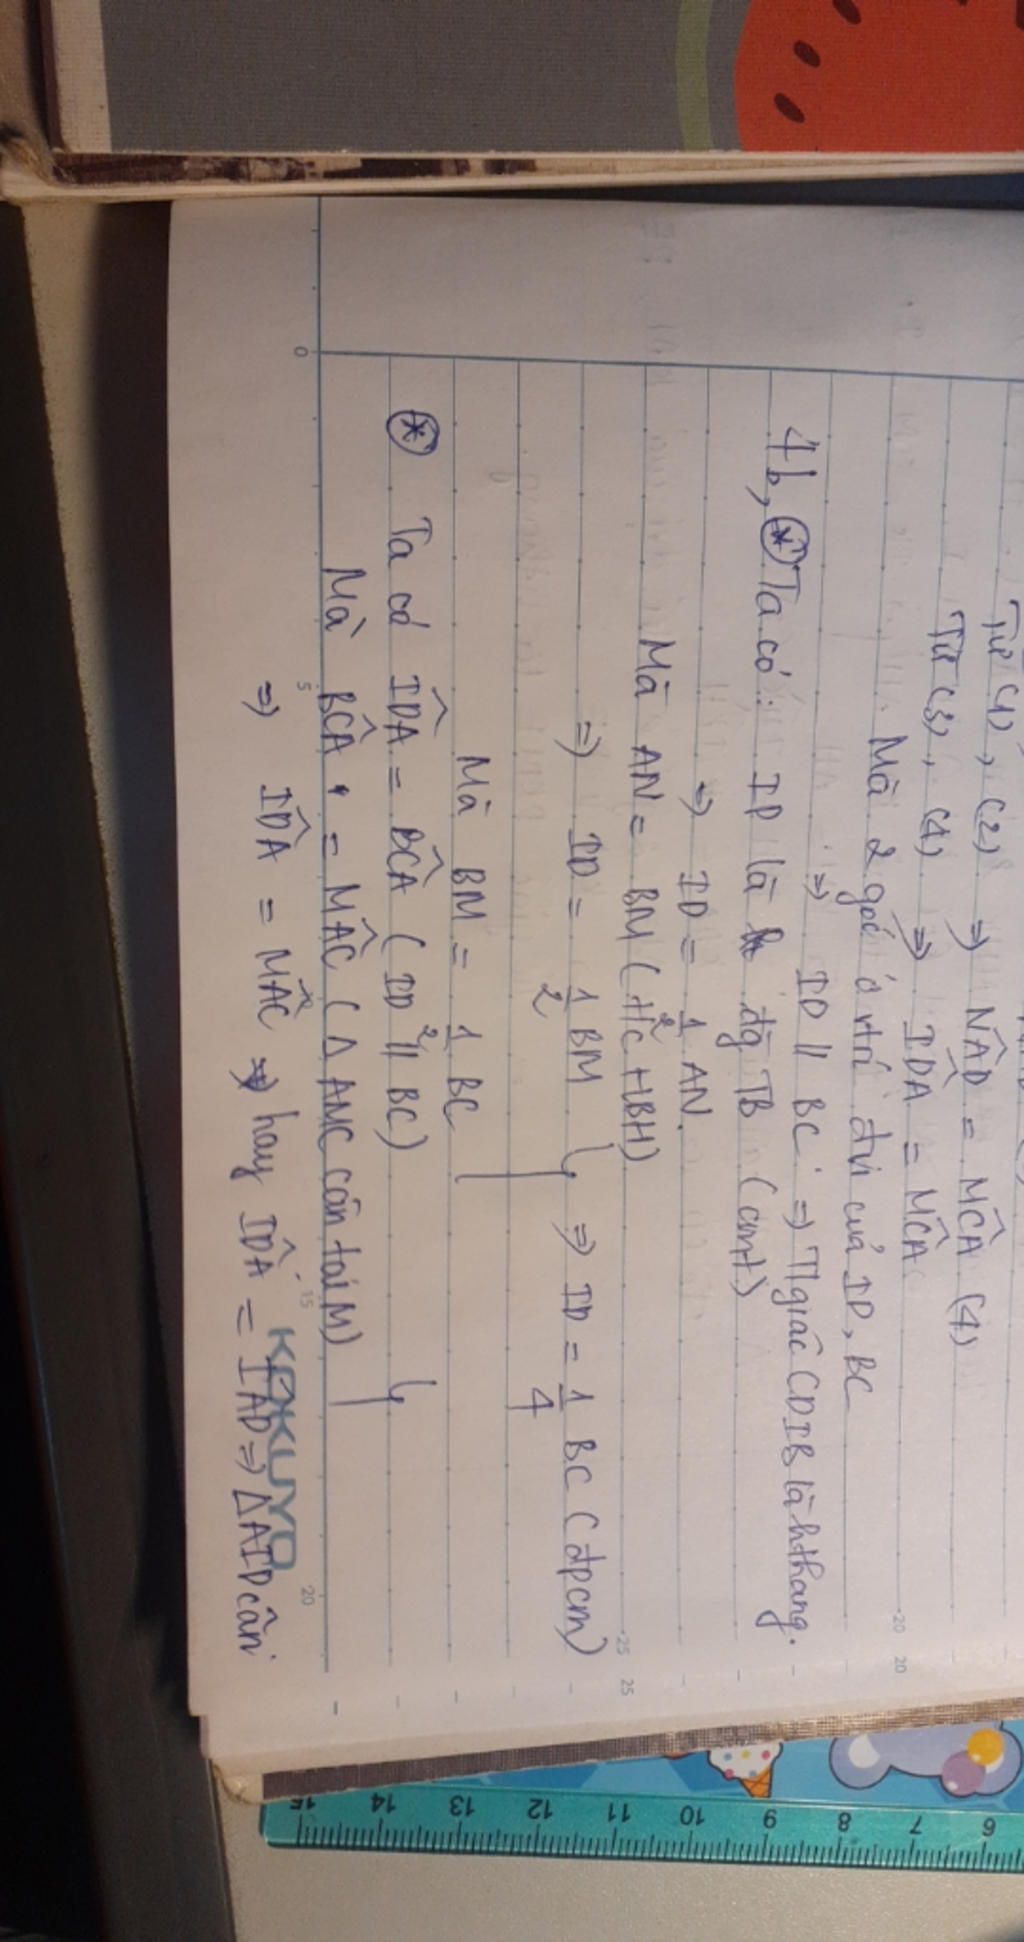 Từ (1), (2) ⇒ NÂD = MĈA (4)
Từ (3), (4) ⇒ ID̂A = MĈA
Mà 2 góc ở vtrí đvị của ID, BC
⇒ ID // BC ⇒ Tgiác CDIB là hthang.
4b, * Ta có: ID là đg TB (cmt)
⇒ ID = 1/2 AN.
Mà AN = BM (t/c HBH)
⇒ ID = 1/2 BM
⇒ ID = 1/4 BC (đpcm)
Mà BM = 1/2 BC
* Ta có ID̂A = BĈA (ID // BC)
Mà BĈA = MÂC (Δ AMC cân tại M)
⇒ ID̂A = MÂC hay ID̂A = IÂD ⇒ Δ AID cân
KOKUYO
0 5 15 20
20 20
25 25
15 14 13 12 11 10 9 8 7 6